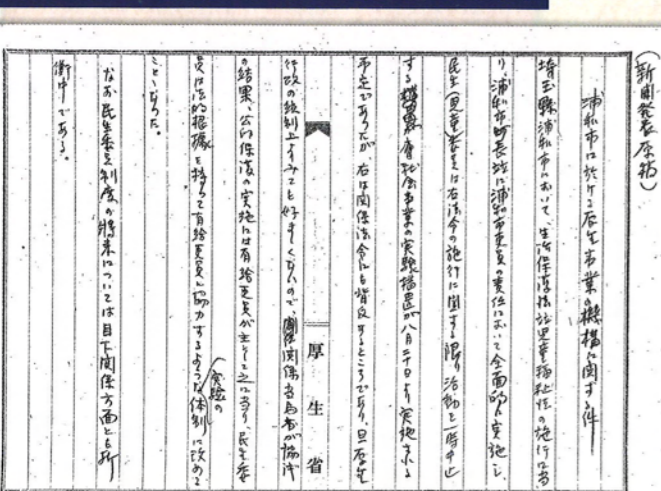 (新聞発表原稿)
浦和市に於ける厚生事業の機構に関する件
埼玉縣浦和市において、生活保護法竝児童福祉法の施行に当
り、浦和市町長竝に浦和市吏員の責任において全面的に実施し、
民生(児童)委員は右法令の施行に関する限り活動を一時中止
する 社会事業の実験措置が八月二十日より実施される
予定であつたが右は関係法令にも背反するところであり、且厚生
行政の統制上よりみても好ましくないので、関係当局者が協議
の結果、公的保護の実施には有給吏員が主として之に当り民生委
員は法的根據を持つて有給吏員に協力するような(実験の)体制に改める
こととなつた。
なお民生委員制度の將来については目下関係方面とも折
衝中である。
厚生省